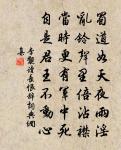 蜀道如天夜雨淫
亂鈴聲裏倍沾襟
當時更有軍中死
自是君王不動心
李覯讀長恨辭詞典網